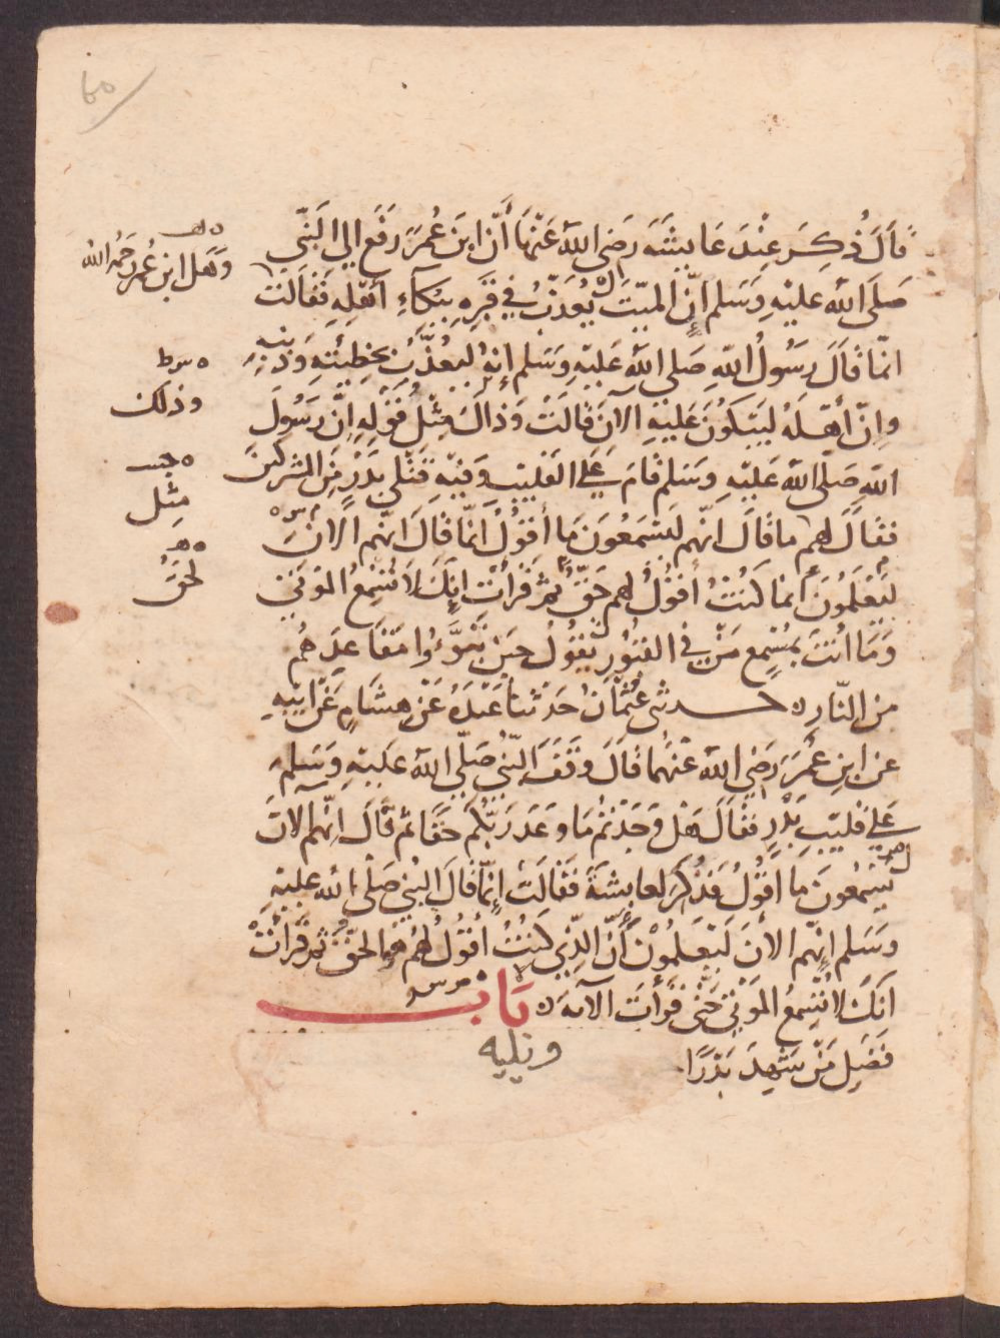 ٦٥
قال ذُكِرَ عِنْدَ عَايشَةَ رضى الله عَنْهَا أَنّ ابنَ عُمَرَ رَفَعَ الى النَبّى
وَهَل ابن عُمر رحمه الله
صَلَى الله عليْهِ وَسَلم إنّ الميّتَ يُعَذّبُ في قَبْرِهِ بِبُكآءِ أهْلِهِ فَقَالَتْ
انّما قَالَ رسُولُ اللهِ صَلى الله عَليْهِ وَسَلم إنه ليُعَذّبُ بخطِيئَتِهِ وَذنبِهِ
وإنّ أهْلَهُ ليَبْكُونَ عَليْهِ الآنَ قالَتْ وَذاكَ مِثْلُ قَوْلِهِ انَّ رَسُولَ
وذلك
اللهِ صَلّى الله عَليْهِ وسَلم قامَ عَلى القَلِيْبِ وَفيْهِ قَتْلى بَدْرٍ مِنَ المشركينَ
مِثل
فقَالَ لهم ما قالَ انّهم لَيَسْمَعُونَ مَا أقُولُ انّما قَالَ انّهم الآنَ
لَيَعْلَمُونَ أنما كُنْتُ أقُوْلُ لهم حَقّ ثمّ قَرأتْ إنكَ لا تُسْمِعُ المَوْتَى
لحَقّ
وَمَا انْتَ بمُسْمِعٍ مَنْ في القُبُوْرِ يَقُولُ حِيْنَ تَبَوَّءُوا مَقَاعِدَهُم
من النّارِ حدثنى عُثْمانُ حَدثنا عَبْدَةُ عَنْ هِشَامٍ عَنْ ابيْهِ
عن ابنِ عُمَرَ رَضى الله عَنْهُما قالَ وَقَفَ النّبيُّ صَلّى الله عَليْهِ وَسَلم
عَلى قَلِيْبِ بَدْرٍ فقَالَ هَلْ وَجَدْتُمْ مَا وَعَدَ رَبّكم حَقّا ثم قَالَ انّهم الآنَ
يَسْمَعُونَ ما أقُوْلُ فَذُكِرَ لعايشةَ فَقالَتْ إنّما قالَ النبيّ صَلى الله عليْهِ
وسَلم إنّهم الآنَ لَيَعْلَمُوْنَ أَنّ الذِي كُنْتُ أقُوْلُ لهُمْ هُوَ الحَقّ ثم قَرأتْ
انّكَ لا تُسْمِعُ المَوْتَى حَتّى قَرَأَتْ الآيَةَ بَاب
فَضْلِ مَنْ شَهِدَ بَدْرًا
ويليه